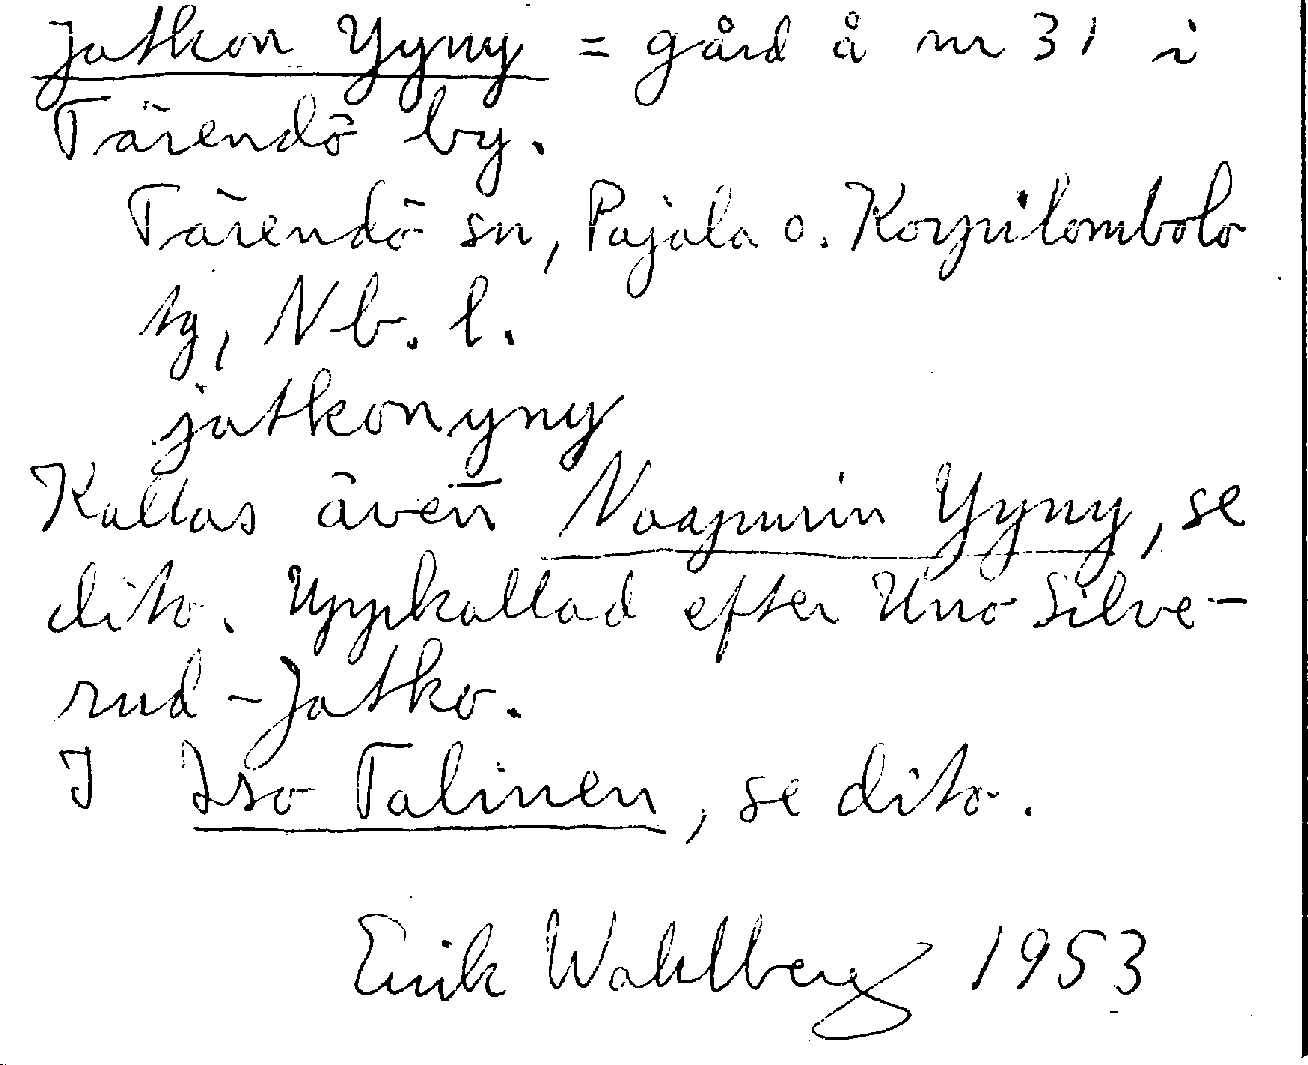 Jatkon Yyny = gård å nr 31 i
Tärendö by.
Tärendö sn, Pajala o. Korpilombolo
tg, Nb. l.
jatkonyny
Kallas även Naapurin Yyny, se
dito. Uppkallad efter Uno Silve-
rud-Jatko.
I Iso Talinen, se dito.
Erik Wahlberg 1953